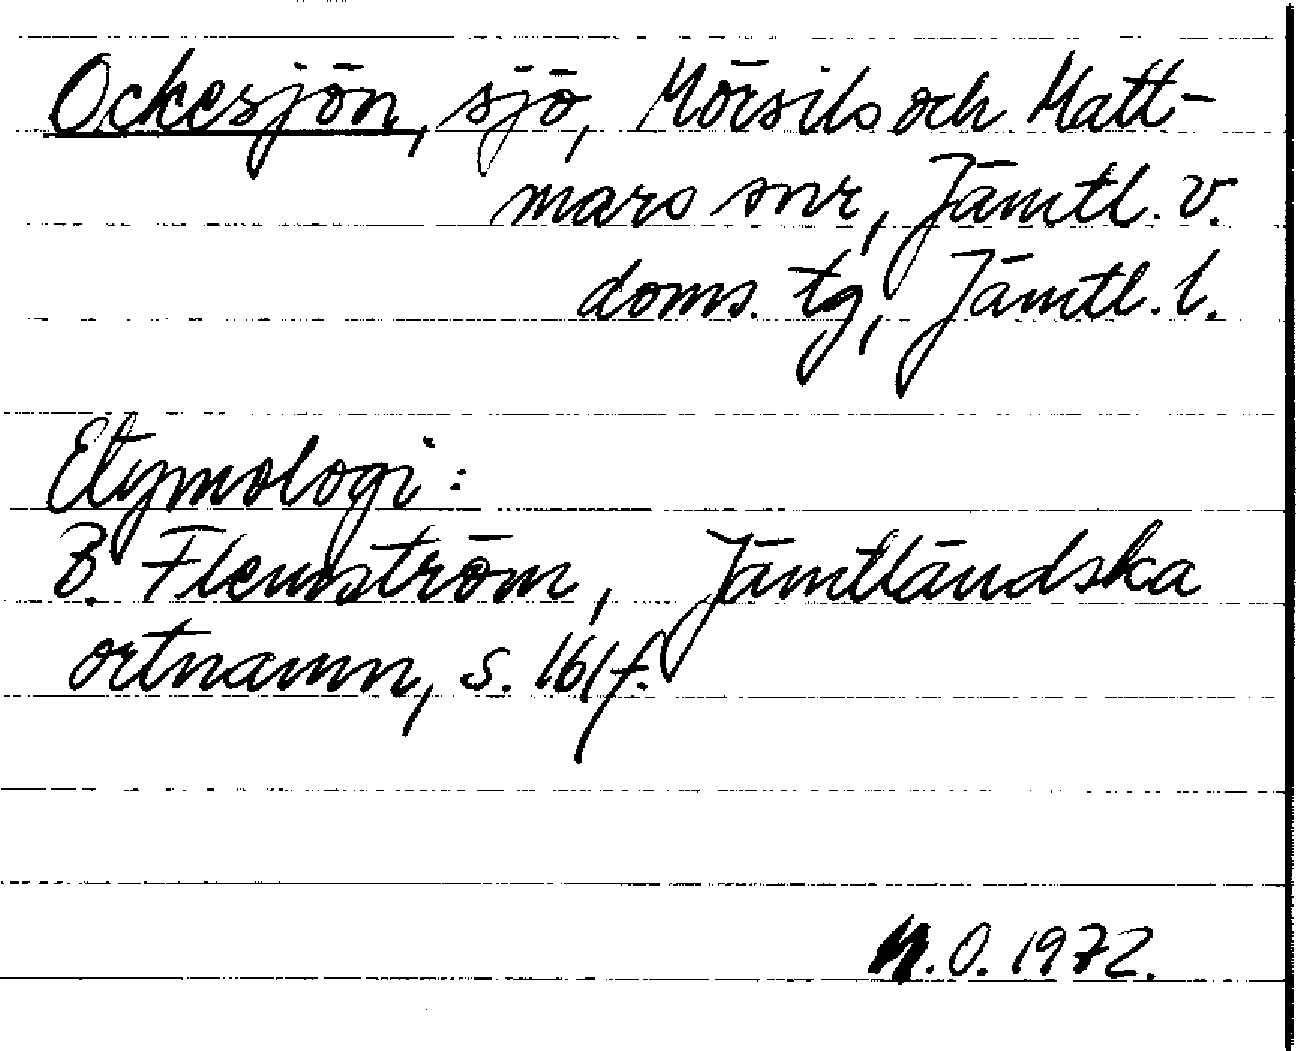 Ockesjön, sjö, Mörsils och Matt-
mars snr, Jämtl. v.
doms. tg, Jämtl. l.
Etymologi:
B. Flemström, Jämtländska
ortnamn, s. 161f.
M.O. 1972.